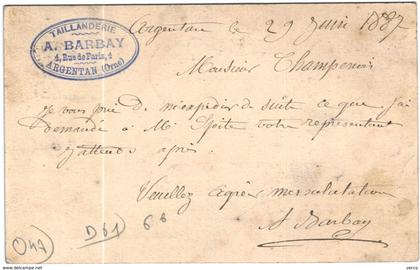 TAILLANDERIE
A. BARBAY
4, Rue de Paris, 4
ARGENTAN (Orne)
Argentan le 29 Juin 1887
Monsieur Champenois
Je vous prie de m'expédier de suite ce que j'ai
demandé à Mr votre représentant
j'attends après.
Veuillez agréer mes salutations
A Barbay
O47
D61
66
www.delcampe.net
vprco